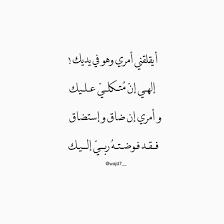 أيقلقني أمري وهو في يديك؛
إلهي إنّ مُتـكلـيّ عـلـيك
و أمري إن ضاق و إستضاق
فـقـد فـوضـتـهُ ربـيّ إلـيـك
@wajd7__